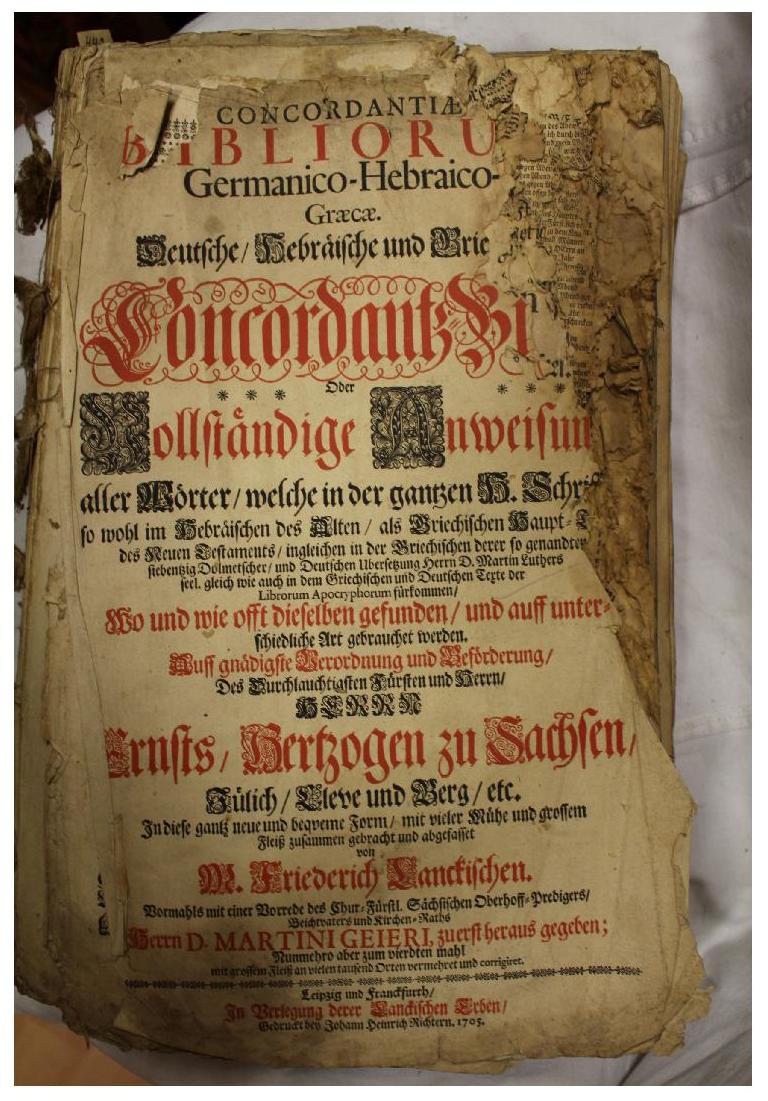 CONCORDANTIÆ
BIBLIORU
Germanico-Hebraico-
Græcæ.
Deutsche/ Hebräische und Grie
Concordantz-Bi
Oder
Vollständige Anweisun
aller Wörter/ welche in der gantzen H. Schrif
so wohl im Hebräischen des Alten/ als Griechischen Haupt-
des Neuen Testaments/ ingleichen in der Griechischen derer so genandten
siebentzig Dolmetscher/ und Deutschen Ubersetzung Herrn D. Martin Luthers
seel. gleich wie auch in dem Griechischen und Deutschen Texte der
Librorum Apocryphorum fürkommen/
Wo und wie offt dieselben gefunden/ und auff unter-
schiedliche Art gebrauchet werden.
Auff gnädigste Verordnung und Beförderung/
Des Durchlauchtigsten Fürsten und Herrn/
HERRN
Ernsts/ Hertzogen zu Sachsen/
Jülich/ Cleve und Berg/ etc.
In diese gantz neue und beqveme Form/ mit vieler Mühe und grossem
Fleiß zusammen gebracht und abgefasset
von
M. Friederich Lanckischen.
Vormahls mit einer Vorrede des Chur-Fürstl. Sächsischen Oberhoff-Predigers/
Beichtvaters und Kirchen-Raths
Herrn D. MARTINI GEIERI, zuerst heraus gegeben;
Nunmehro aber zum vierdten mahl
mit grossem Fleiß an vielen tausend Orten vermehret und corrigiret.
Leipzig und Franckfurth/
In Verlegung derer Lanckischen Erben/
Gedruckt bey Johann Heinrich Richtern. 1705.